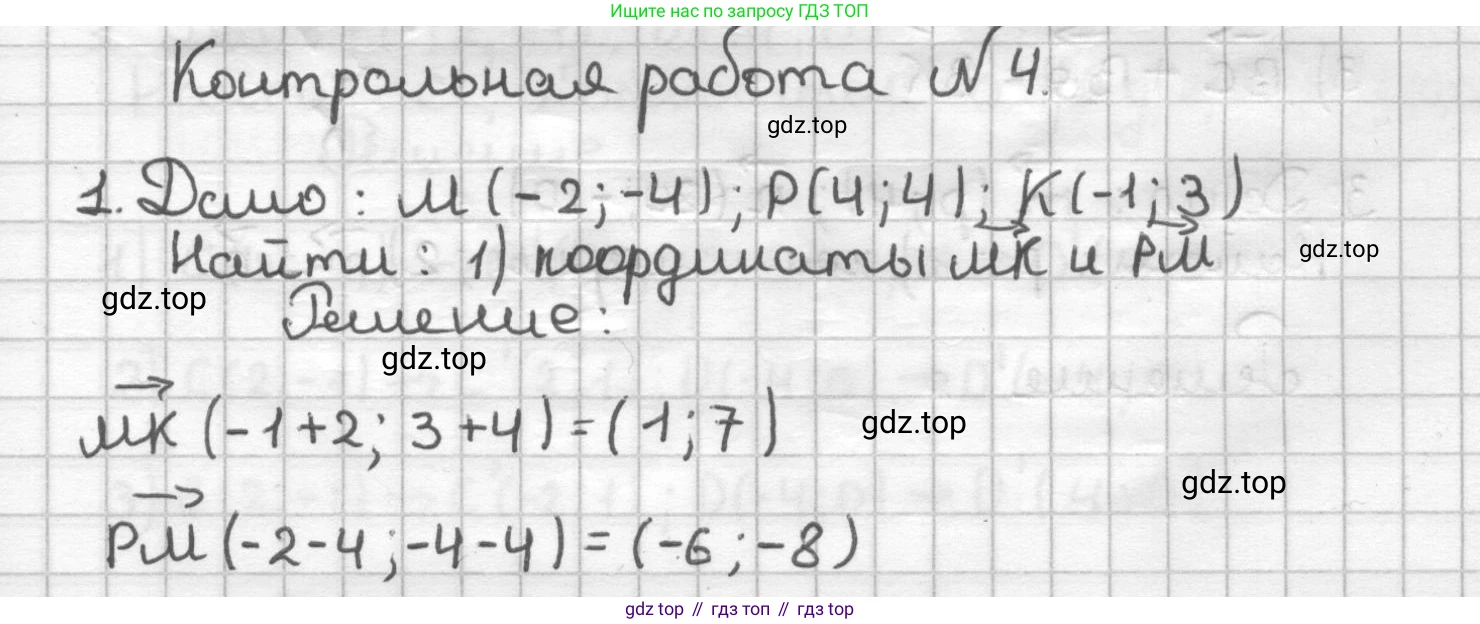 Ищите нас по запросу ГДЗ ТОП
Контрольная работа № 4.
gdz.top
1. Дано: M(-2;-4); P(4;4); K(-1;3)
Найти: 1) координаты \overrightarrow{MK} и \overrightarrow{PM}
gdz.top
gdz.top
Решение:
gdz.top
\overrightarrow{MK} (-1+2; 3+4)=(1;7)
gdz.top
gdz.top
\overrightarrow{PM} (-2-4;-4-4)=(-6;-8)
gdz top // гдз топ // гдз top